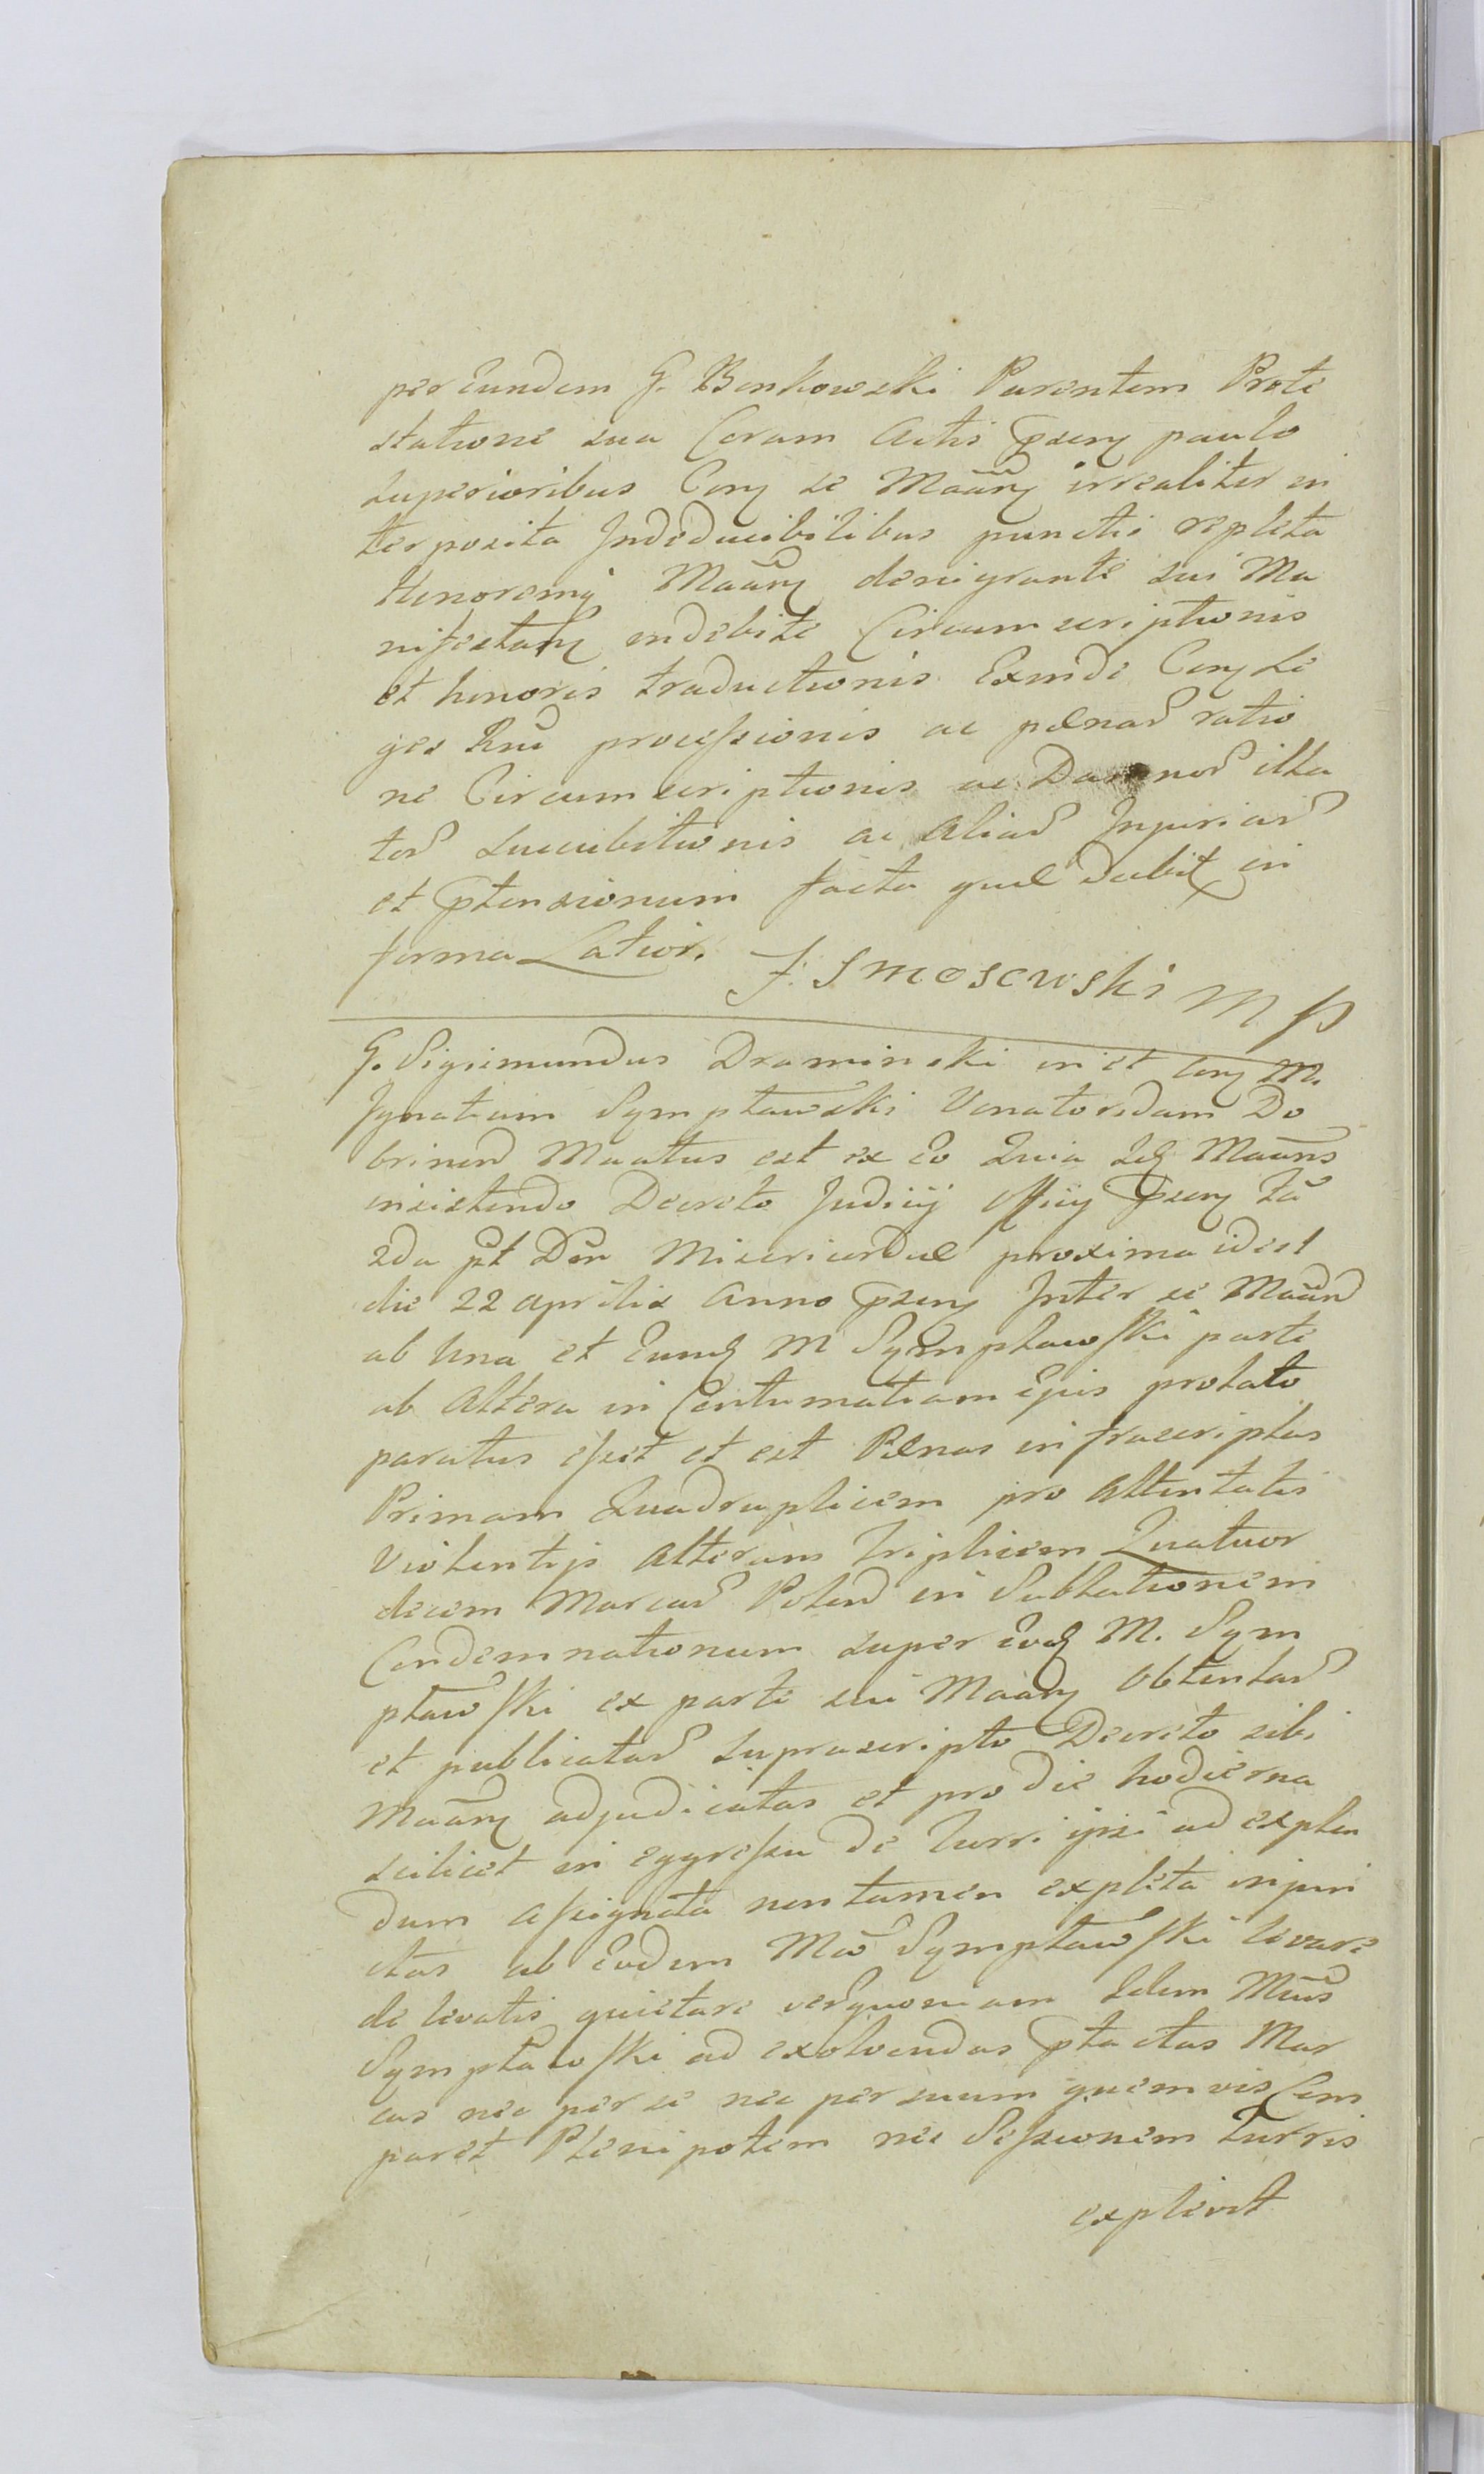 per Eundem G. Benkowski Parentem Prote
statione sua Coram Actis psen paulo
superioribus Con se Maan irrealiter in
terposita Indeducibilibus punctis repleta
Honoremq Maan denigrante sui Ma
nifestan indebite Circumscriptionis
et honoris traductionis Exinde Con Le
ges Rni processionis ac pænar ratio
ne Circumscriptionis ac Damnor illa
tor succubitionis ac aliar Injuriar
et ptensionum facta quæ dabit in
forma Latiori.
F. Smosewski mp
G. Sigismundus Draminski in et con M.
Ignatium Symptawski Venatoridam Do
brinen Maatus est ex Eo Quia Id Maans
insistendo Decreto Judicij Officij psen Fa
2da pt Dcn Misericordiæ proxima idest
die 22 aprilis anno psen Inter se Maan
ab Una et Eund M Symptawski parte
ab Altera in Contumatiam Ejus prolato
paratus esset et est Pænas infrascriptas
Primam Quadruplicem pro Attentatis
Violentijs alteram Triplicem Quatuor
decem Marcar Polon in Sublationem
Condemnationum super Eod M. Sym
ptawski ex parte sui Maan Obtentar
et publicatar suprascripto Decreto sibi
Maan adjudicatas et pro die hodierna
scilicet in egressu de Turri ipsi ad explen
dum assignata nontamen expleta injun
ctas ab Eodem Mco Symptawski levare
de levatis quietare verquoniam Idem Mcus
Symptawski ad exolvendas ptactas Mar
cas nec per se nec per suum quemvis Com
paret Plenipotem nec Sessionem Turris
explevit